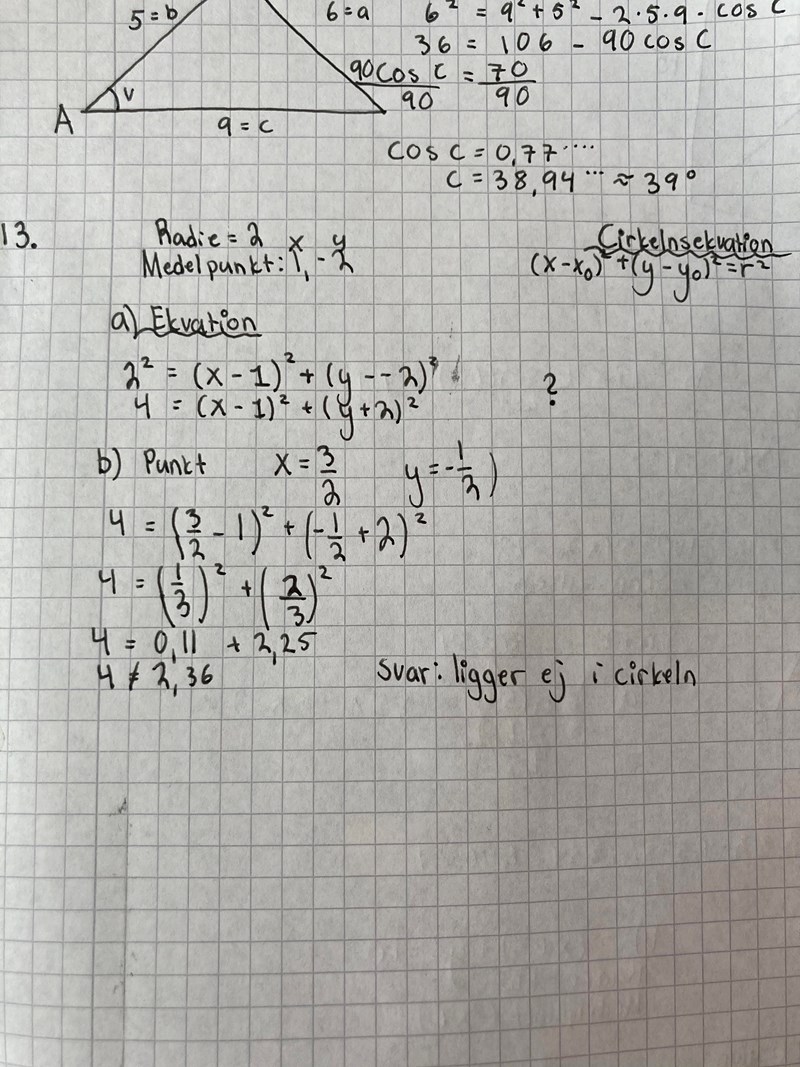 5 = b
6 = a
6² = 9² + 5² - 2·5·9· cos C
36 = 106 - 90 cos C
90 cos C / 90 = 70 / 90
V
A
9 = c
cos C = 0,77....
C = 38,94... ≈ 39°
13. Radie = 2 x y
Medelpunkt: 1, -2
Cirkelnsekvation
(x-x₀)² + (y-y₀)² = r²
a) Ekvation
2² = (x-1)² + (y--2)²
4 = (x-1)² + (y+2)²
?
b) Punkt x = 3/2 y = -1/2)
4 = (3/2 - 1)² + (-1/2 + 2)²
4 = (1/3)² + (2/3)²
4 = 0,11 + 2,25
4 ≠ 2,36
Svar: ligger ej i cirkeln